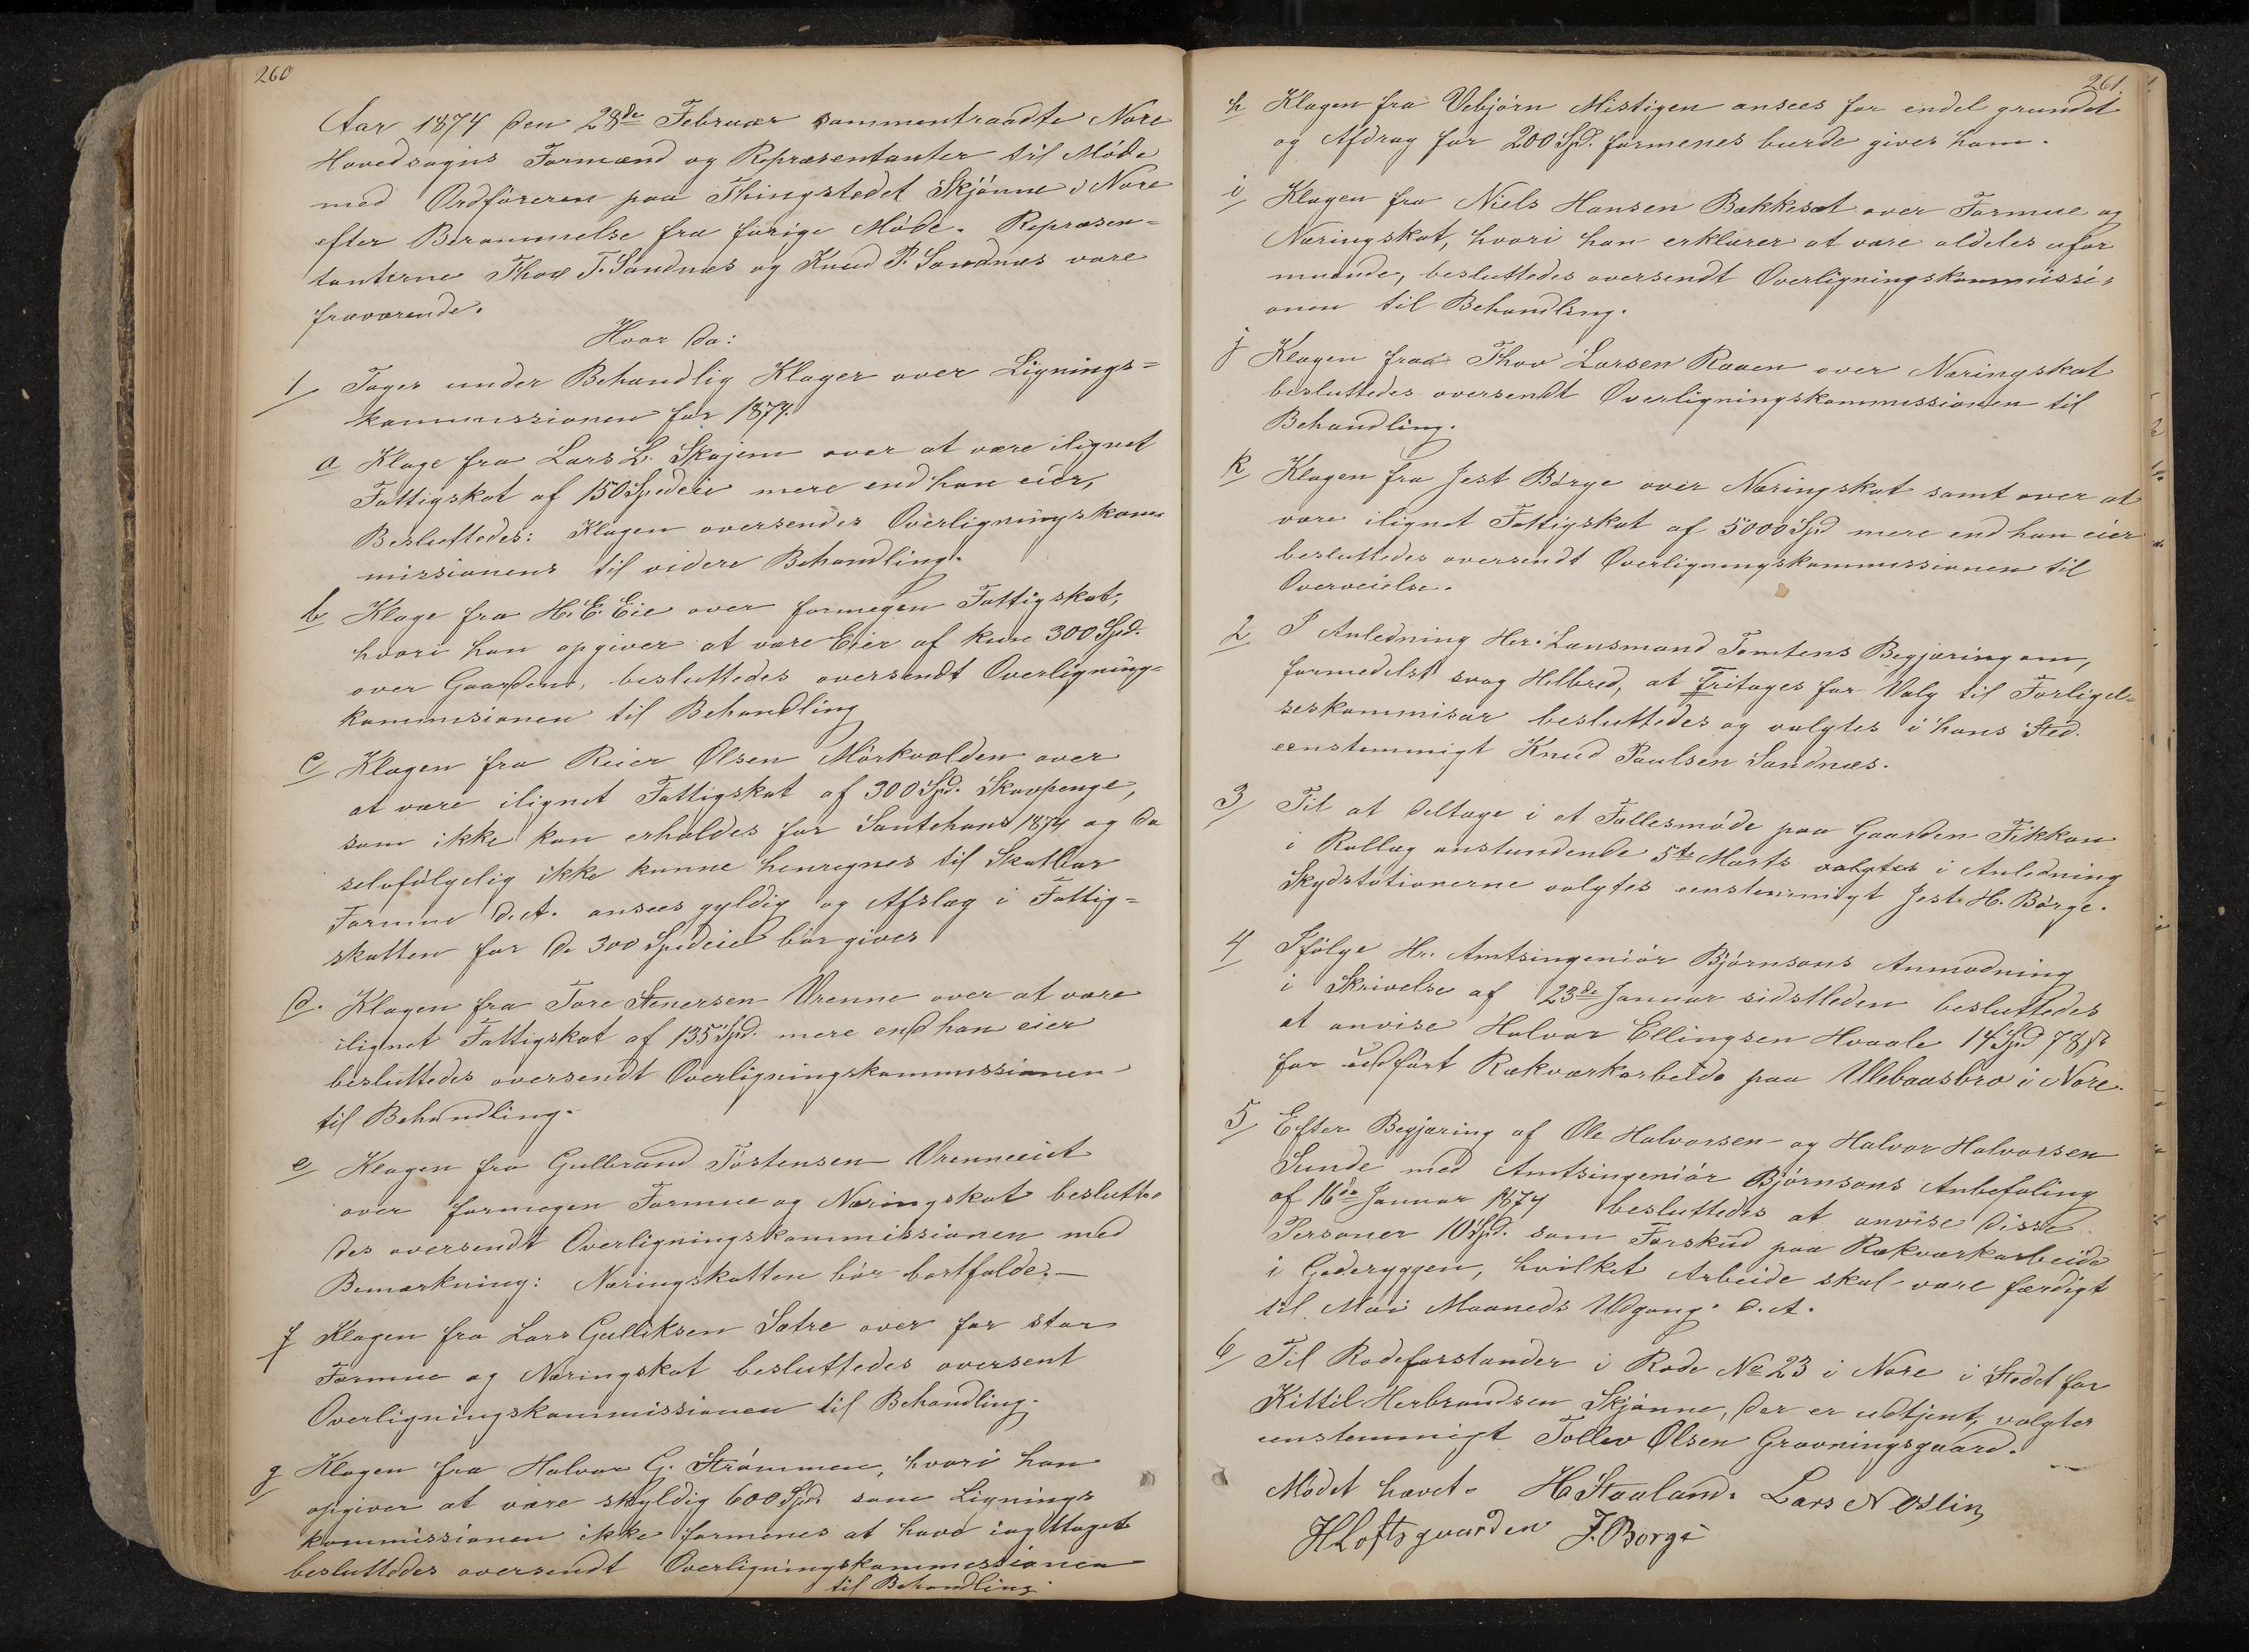 260
Aar 1874 den 28de Februar sammentraadte Nore
Hovedsogns Formænd og Repræsentanter til Møde
med Ordføreren paa Thingstedet Skjønne i Nore
efter Berammelse fra forige Møde. Repræsen=
tanterne Thov T. Sandnæs og Knud P. Sandnæs vare
fraværende.
Hvor da:
1/ Toges under Behandlig Klager over Lignings=
kommissionen for 1874.
a Klage fra Lars L. Skajem over at være ilignet
Fattigskat af 150 Spedeir mere end han eier,
Besluttedes: Klagen oversendes Overligningskom=
missionens til videre Behandling.
b Klage fra H. E. Eie over formegen Fattigskat,
hvori han opgiver at være Eier af kun 300 Spd.
over Gaarden, besluttedes oversendt Overligning=
kommisionen til Behandling
c/ Klagen fra Reier Olsen Mörkvolden over
at være ilignet Fattigskat af 300 Spd. Skovpenge,
som ikke kan erholdes før Santehans 1874 og da
selvfølgelig ikke kunne henregnes til Skatbar
Formue d. A. ansees gyldig og Afslag i Fattig=
skatten for de 300 Spedeier bør gives
d. Klagen fra Tore Stenersen Vrenne over at være
ilignet Fattigskat af 135 Spd. mere end han eier
besluttedes oversendt Overligningskommissionen
til Behandling.
e/ Klagen fra Gulbrand Tostensen Vrenneeiet
over formegen Formue og Næringskat beslutte=
des oversendt Overligningskommissionen med
Bemærkning: Næringskatten bør bortfalde.—
f Klagen fra Lars Gulliksen Sætre over for stor
Formue og Næringskat besluttedes oversent
Overligningskommissionen til Behandling.
g Klagen fra Halvor G. Strömmen, hvori han
opgiver at være skyldig 600 Spd. som Lignings
kommissionen ikke formenes at have iagttaget
besluttedes oversendt Overligningskommissionen
til Behandling.
261.
h Klagen fra Vebjørn Mistigen ansees for endel grundet
og Afdrag for 200 Spd. formenes burde gives ham.
i Klagen fra Niels Hansen Bakkeset over Formue og
Næringskat, hvori han erklærer at være aldeles ufor
muende, besluttedes oversendt Overligningskommissi=
onen til Behandling.
j Klagen fra Thov Larsen Raaen over Næringskat
besluttedes oversendt Overligningskommissionen til
Behandling.
k Klagen fra Jest Börge over Næringskat samt over at
være ilignet Fattigskat af 5000 Spd mere end han eier
besluttedes oversendt Overligningskommissionen til
Overveielse.
2 I Anledning Her. Lensmand Tomtens Begjæring om,
formedelst svag Helbred, at fritages for Valg til Forligel=
seskommisær besluttedes og valgtes i hans Sted.
eenstemmigt Knud Paulsen Sandnæs.
3/ Til at deltage i et Fællesmøde paa Gaarden Fikkan
i Rollag anstundende 5te Marts valgtes i Anledning
Skydstationerne valgtes eenstemmigt Jest H. Börge.
4/ Ifølge Hr. Amtsingeniör Björnsons Anmodning
i Skrivelse af 23de Januar sidstleden besluttedes
at anvise Halvor Ellingsen Hvaale 14 Spd 78 ß
for udført Rækværkarbeide paa Ullebaasbro i Nore.
5/ Efter Begjæring af Ole Halvorsen og Halvor Halvorsen
Sunde med Amtsingeniör Björnsons Anbefaling
af 16de Januar 1874 besluttedes at anvise disse
Personer 10 Spd. som Forskud paa Rækværkarbeide
i Goderyggen, hvilket Arbeide skal være færdigt
til Mai Maaneds Udgang d. A.
6/ Til Rodeforstander i Rode No 23 i Nore i Stedet for
Kittil Herbrandsen Skjønne, der er udtjent, valgtes
eenstemmigt Tollev Olsen Gravningsgaard.
Mødet hævet. H Staaland. Lars N Oslin
H Loftsgaarden J. Borge